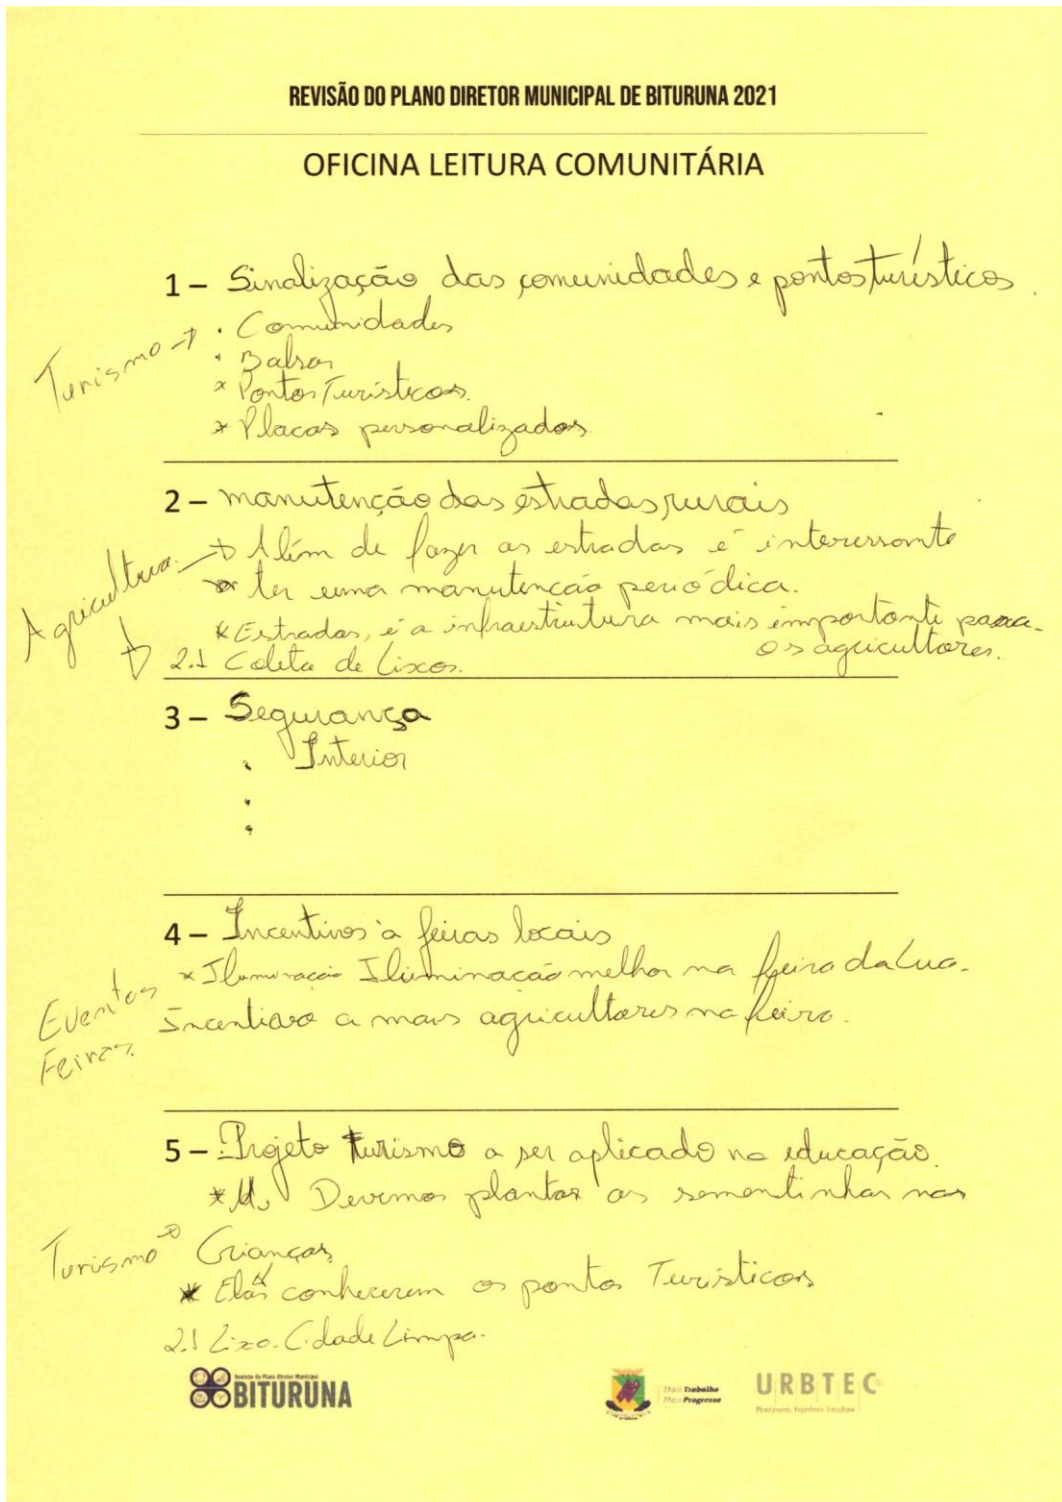 REVISÃO DO PLANO DIRETOR MUNICIPAL DE BITURUNA 2021
OFICINA LEITURA COMUNITÁRIA
1 – Sinalização das comunidades e pontos turísticos.
Turismo → • Comunidades
• Balsas
* Pontos Turísticos.
* Placas personalizadas.
2 – manutenção das estradas rurais
Agricultura. → Além de fazer as estradas é interessante
ter uma manutenção periódica.
* Estradas, é a infraestrutura mais importante para
os agricultores.
2.1 Coleta de Lixos.
3 – Segurança
• Interior
•
•
4 – Incentivos à feiras locais
* Iluminação Iluminação melhor na feira da Lua.
Eventos
Incentivo a mais agricultores na feira.
Feiras.
5 – Projeto turismo a ser aplicado na educação.
* Devemos plantar as sementinhas nas
Turismo → Crianças.
* Elas conhecerem os pontos Turísticos
2.1 Lixo. Cidade Limpa.
Revisão do Plano Diretor Municipal
BITURUNA
Mais Trabalho
Mais Progresso
URBTEC